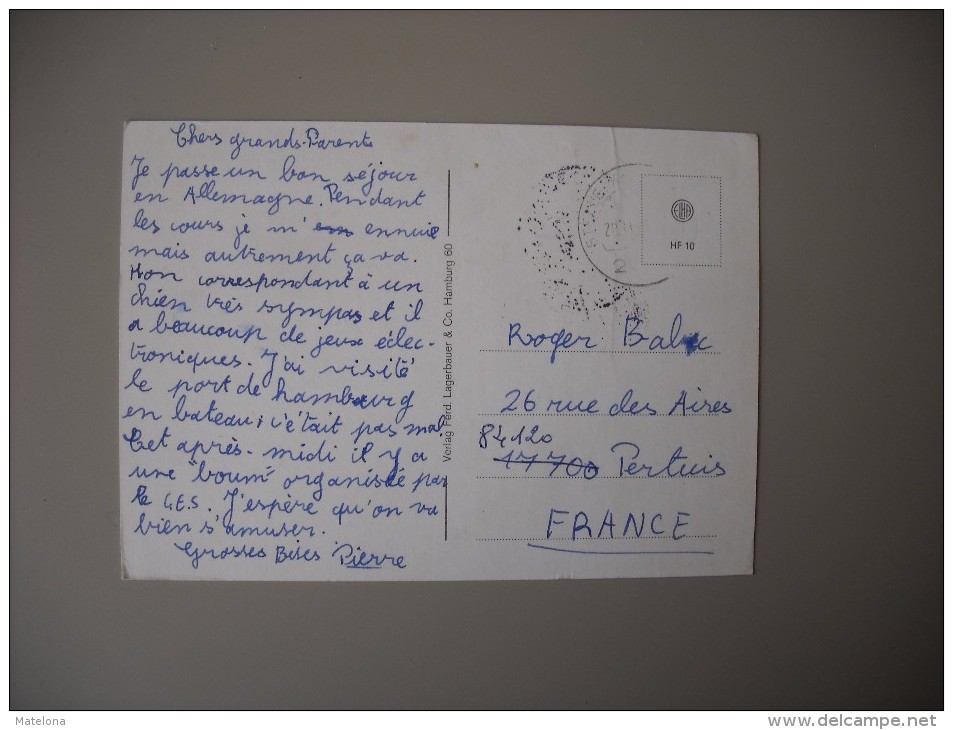 Chers grands-Parents
Je passe un bon séjour
en Allemagne. Pendant
les cours je m'en ennuie
mais autrement ça va.
Mon correspondant à un
chien très sympas et il
a beaucoup de jeux élec-
troniques. J'ai visité
le port de hambourg
en bateau; c'était pas mal
Cet après-midi il y a
une "boum" organisée par
le C.E.S. J'espère qu'on va
bien s'amuser.
Grosses Bises Pierre
Verlag Ferd. Lagerbauer & Co. Hamburg 60
HF 10
Roger
26 rue des Aires
84120
17700 Pertuis
FRANCE
Matelona
www.delcampe.net